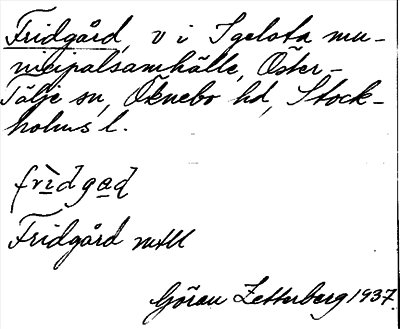 Fridgård, v i Igelsta mu-
nicipalsamhälle, Öster-
Tälje sn, Öknebo hd, Stock-
holms l.
frìdgad
Fridgård
Göran Zetterberg 1937.